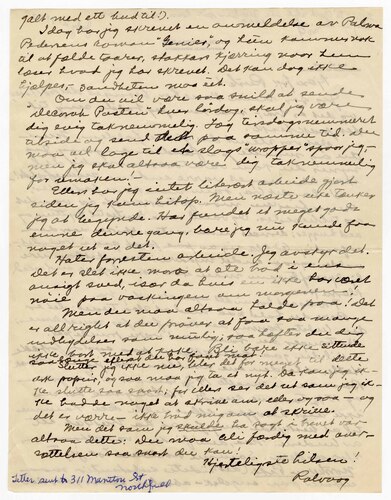 galt med ett bud til).
I dag har jeg skrevet en anmeldelse av Palma
Pedersens roman "Genier", og hun kommer nok
til at fælde taarer, stakkars kjerring naar hun
læser hvad jeg har skrevet. Det kan dog ikke
hjælpes, - sandheten maa ut.
Om du vil være saa snild at sende
"Decorah Posten" hver lørdag, skal jeg være
dig evig taknemmelig. Tag tirsdagsnummeret
tilside og send dem paa samme tid. Du
maa vel lage til et slags "wopper" spør jeg,
men jeg skal altsaa være dig taknemmelig
for umaken!
Ellers har jeg intet literært arbeide gjort
siden jeg kom hitop. Men næste uke tænker
jeg at begynde. Har fundet et meget godt
emne denne gang, bare jeg nu kunde faa
noget ut av det.
Hater forresten arbeide. Jeg avskyr det.
Det er slet ikke moro at æte brød i sit
ansigts sved, når da huis en ikke har været
nøie paa vaskingen om morgenen!
Men du maa altsaa holde paa! Det
er all right at du prøver at faa saa mange
indbydelser som mulig, saa hefter du dig
ikke bort med
Slutter jeg ikke nu, blir det for meget til dette
ark papir, og saa maa jeg ta et nyt. Da kan jeg ik-
ke slutte saa snart, for ellers ser det ut som jeg ik-
ke hadde noget at skrive om, eller ogsaa - og
det er værre - ikke brød mig om at skrive.
Men det som jeg skulde ha sagt i brevet var
altsaa dette: Du maa bli færdig med over-
sættelsen saa snart du kan!
Hjerteligste hilsen!
Palvoog
Letter sent to 311 Manitou St
Northfield